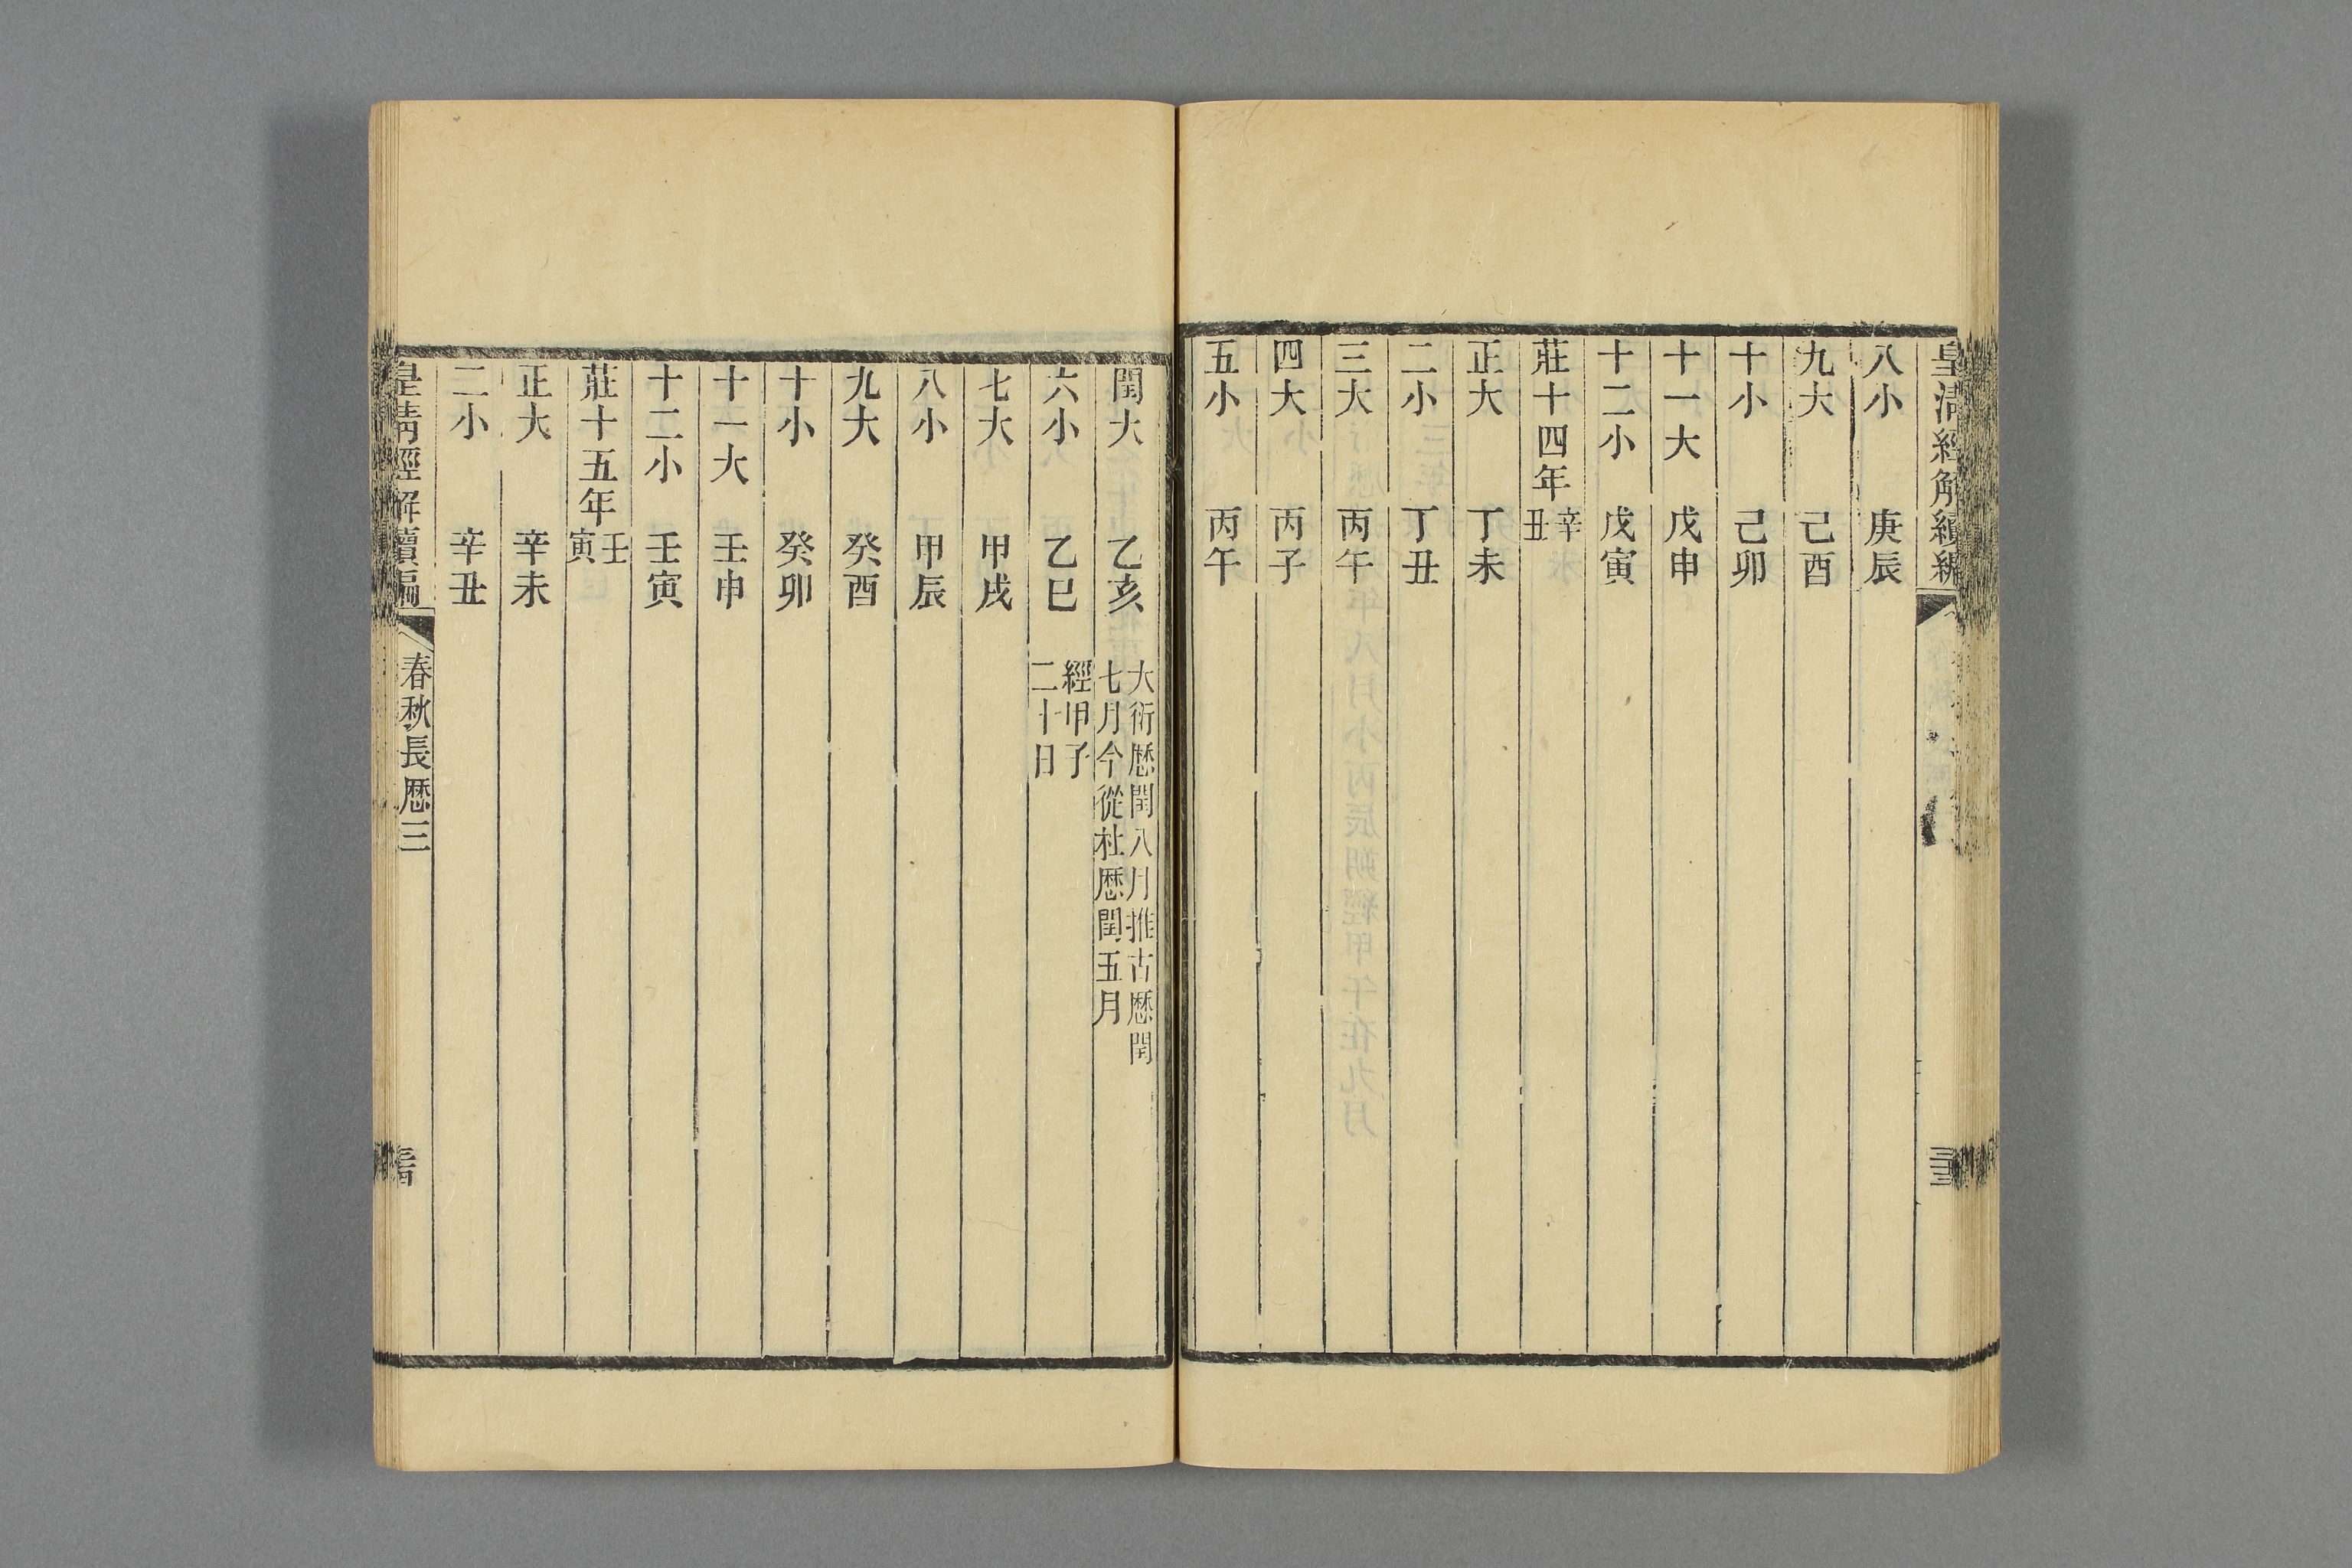 皇清經解續編
八小 庚辰
九大 己酉
十小 己卯
十一大 戊申
十二小 戊寅
莊十四年 辛丑
正大 丁未
二小 丁丑
三大 丙午
四大 丙子
五小 丙午
閏大 乙亥 大衍厯閏八月推古厯閏
七月今從杜厯閏五月
六小 乙巳 經甲子
二十日
七大 甲戌
八小 甲辰
九大 癸酉
十小 癸卯
十一大 壬申
十二小 壬寅
莊十五年 壬寅
正大 辛未
二小 辛丑
皇清經解續編 春秋長厯三